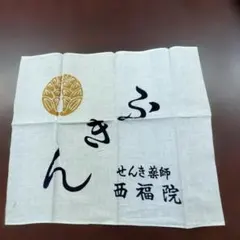 ふきん
せんき薬師
西福院